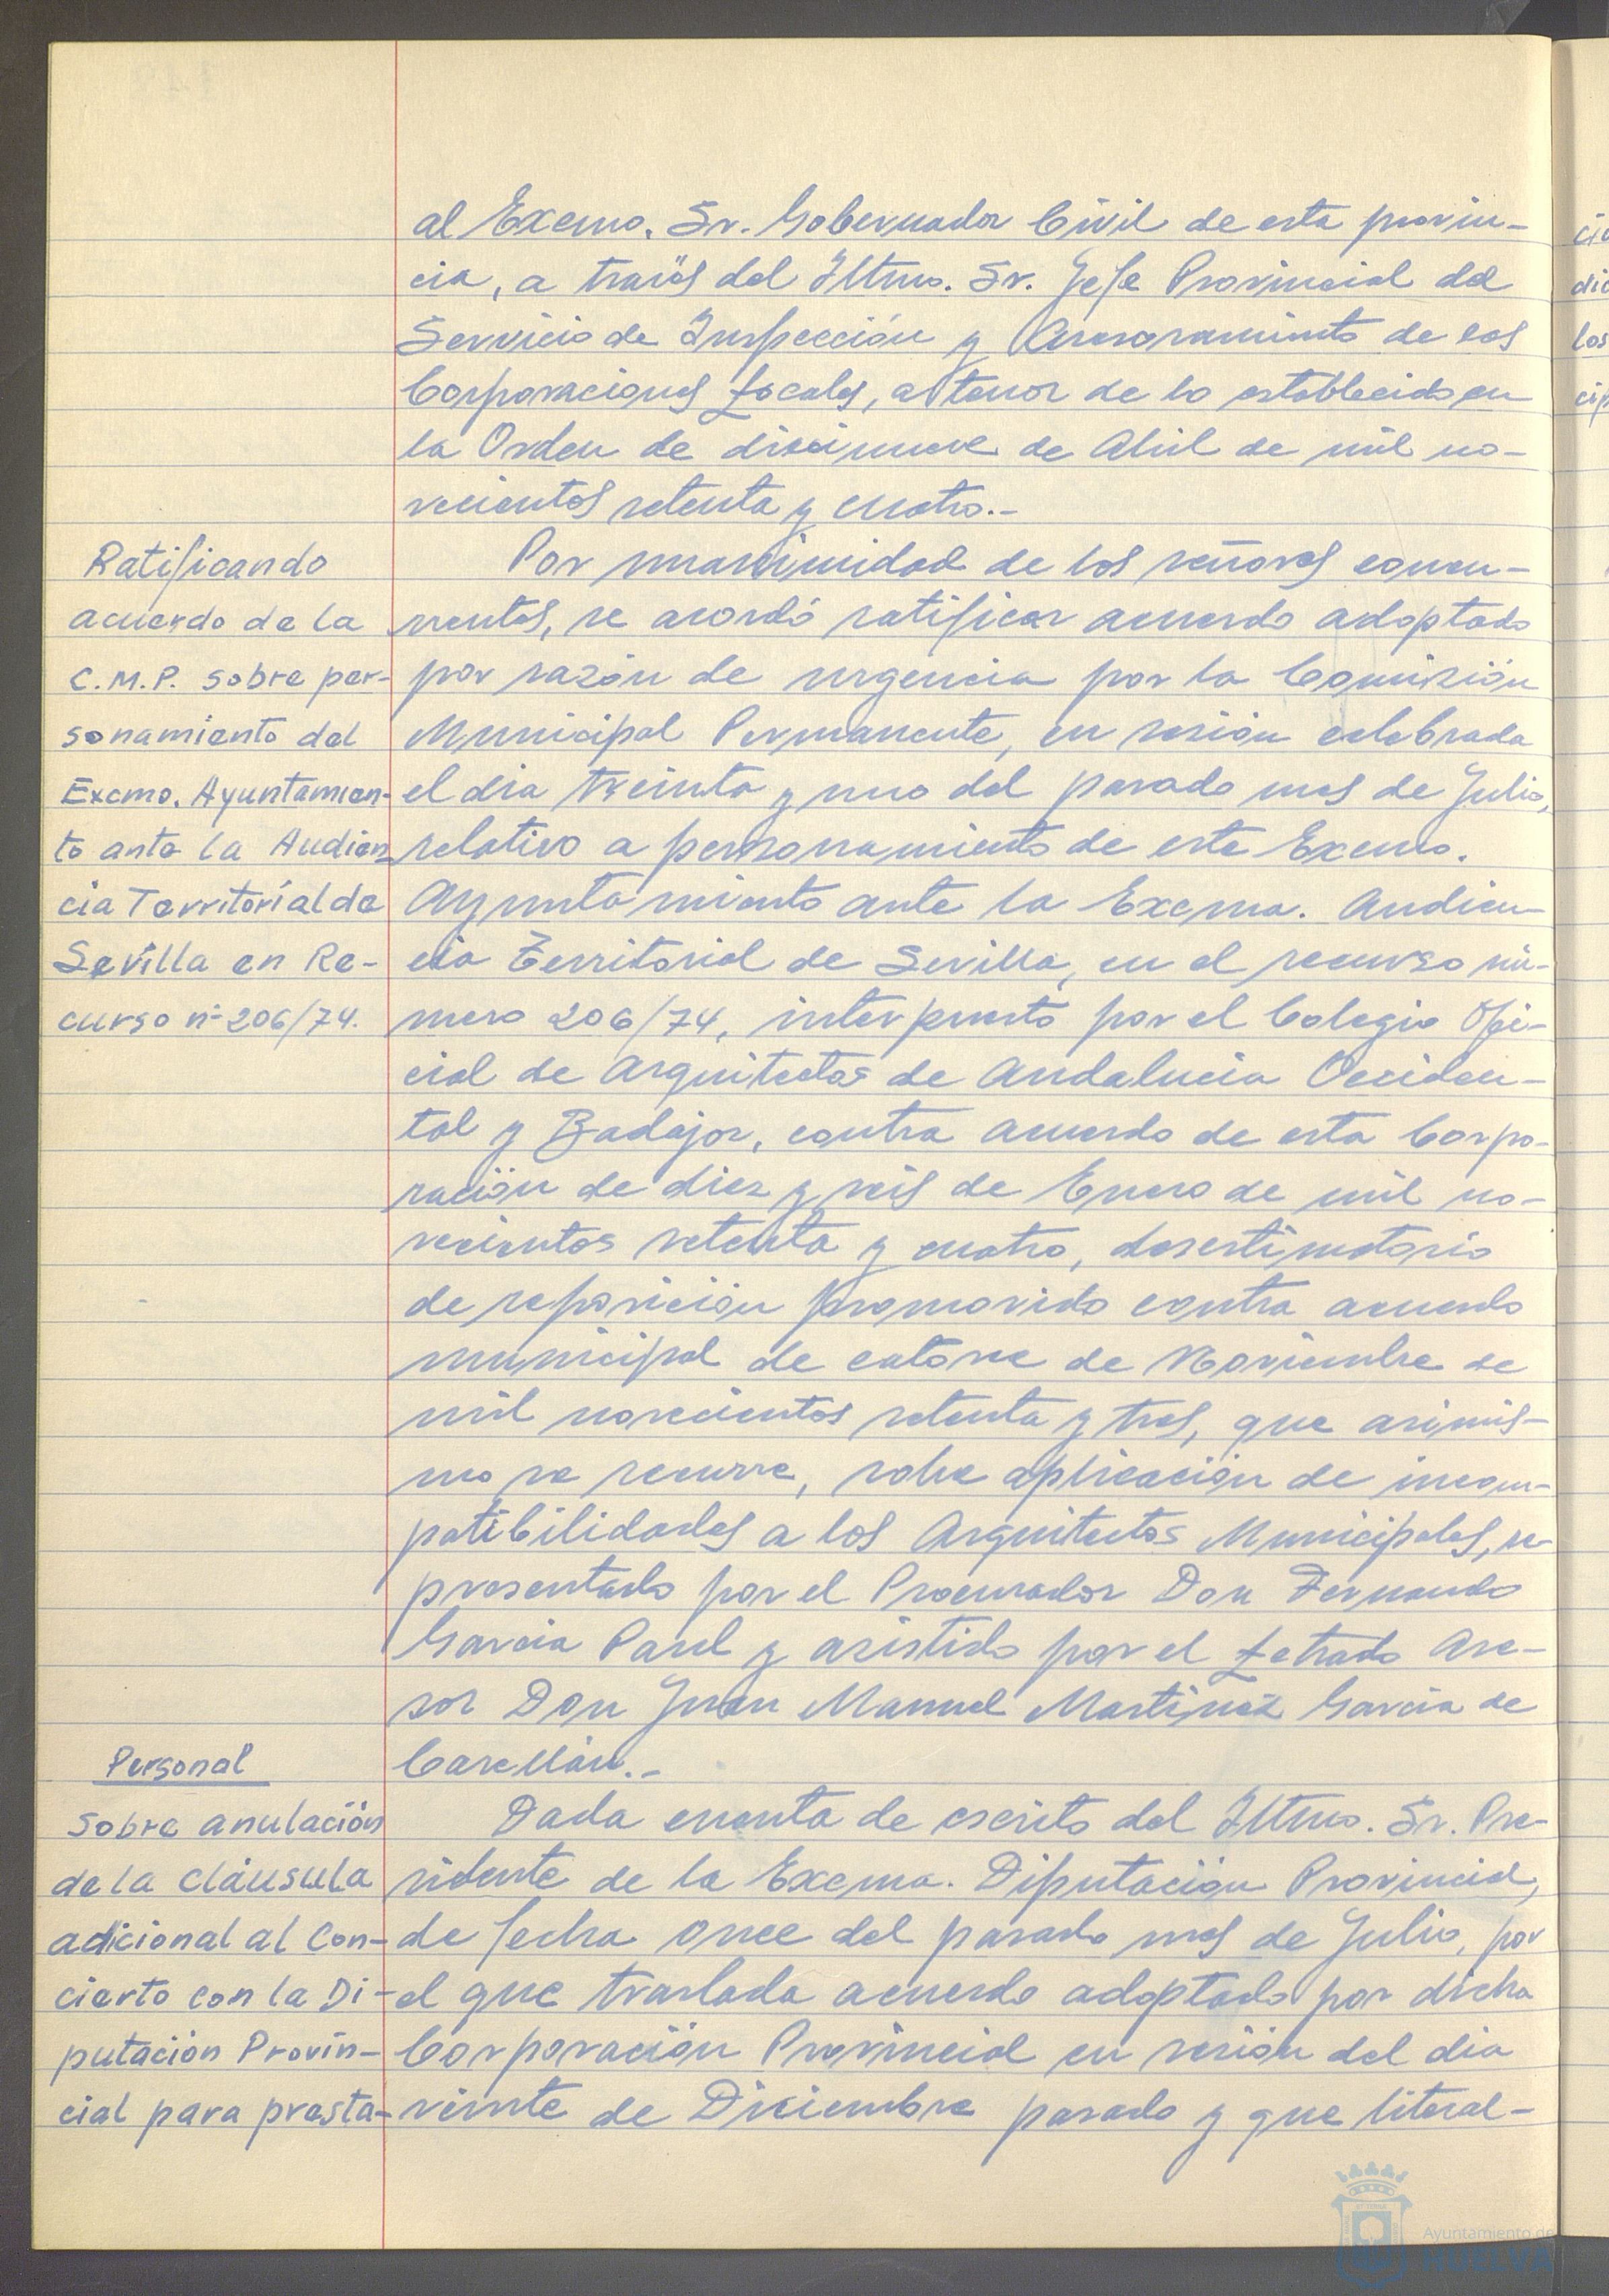 al Excmo. Sr. Gobernador Civil de esta provin-
cia, a través del Iltmo. Sr. Jefe Provincial del
Servicio de Inspección y Asesoramiento de las
Corporaciones Locales, a tenor de lo establecido en
la Orden de diecinueve de Abril de mil no-
vecientos setenta y cuatro.-
Ratificando
acuerdo de la
C.M.P. sobre per-
sonamiento del
Excmo. Ayuntamien-
to ante la Audien
cia Territorial de
Sevilla en Re-
curso nº 206/74.
Por unanimidad de los señores concu-
rrentes, se acordó ratificar acuerdo adoptado
por razón de urgencia por la Comisión
Municipal Permanente, en sesión celebrada
el dia treinta y uno del pasado mes de Julio,
relativo a personamiento de este Excmo.
Ayuntamiento ante la Excma. Audien-
cia Territorial de Sevilla, en el recurso nú-
mero 206/74, interpuesto por el Colegio Ofi-
cial de Arquitectos de Andalucia Occiden-
tal y Badajoz, contra acuerdo de esta Corpo-
ración de diez y seis de Enero de mil no-
vecientos setenta y cuatro, desestimatorio
de reposición promovido contra acuerdo
municipal de catorce de Noviembre de
mil novecientos setenta y tres, que asimis-
mo se recurre, sobre aplicación de incom-
patibilidades a los Arquitectos Municipales, re-
presentado por el Procurador Don Fernando
Garcia Paul y asistido por el Letrado Ase-
sor Don Juan Manuel Martinez Garcia de
Casellán.-
Personal
Sobre anulación
de la cláusula
adicional al Con-
cierto con la Di-
putación Provin-
cial para presta-
Dada cuenta de escrito del Iltmo. Sr. Pre-
sidente de la Excma. Diputación Provincial,
de fecha once del pasado mes de Julio, por
el que traslada acuerdo adoptado por dicha
Corporación Provincial en sesión del dia
veinte de Diciembre pasado y que literal-
los
Ayuntamiento de
HUELVA